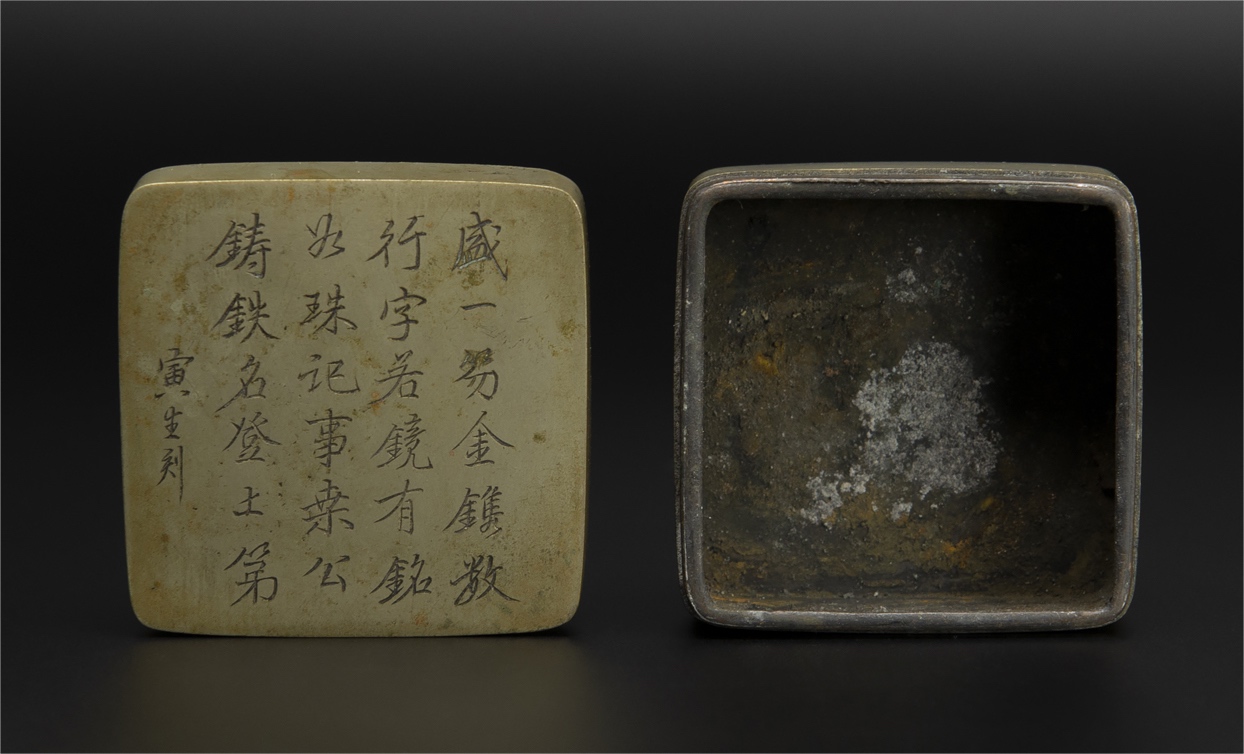 盛一笏金鐫数
行字若鏡有銘
如珠記事桒公
鑄鉄名登上第
寅生刻